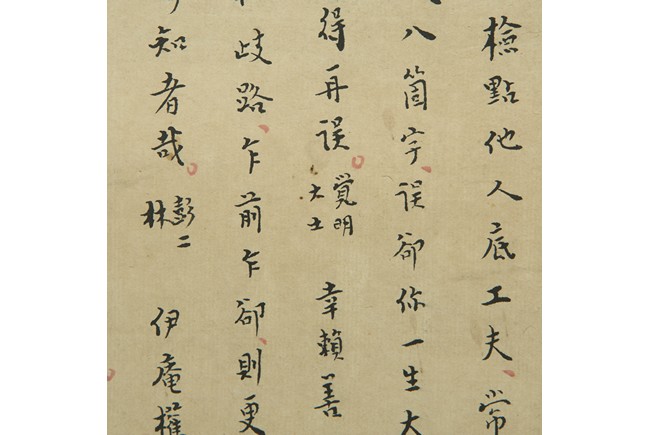 檢點他人底工夫、常
八箇字、誤卻你一生大
得再誤。覺明大士 幸賴善
歧路、乍前乍卻、則更
知者哉。彭二林 伊庵權